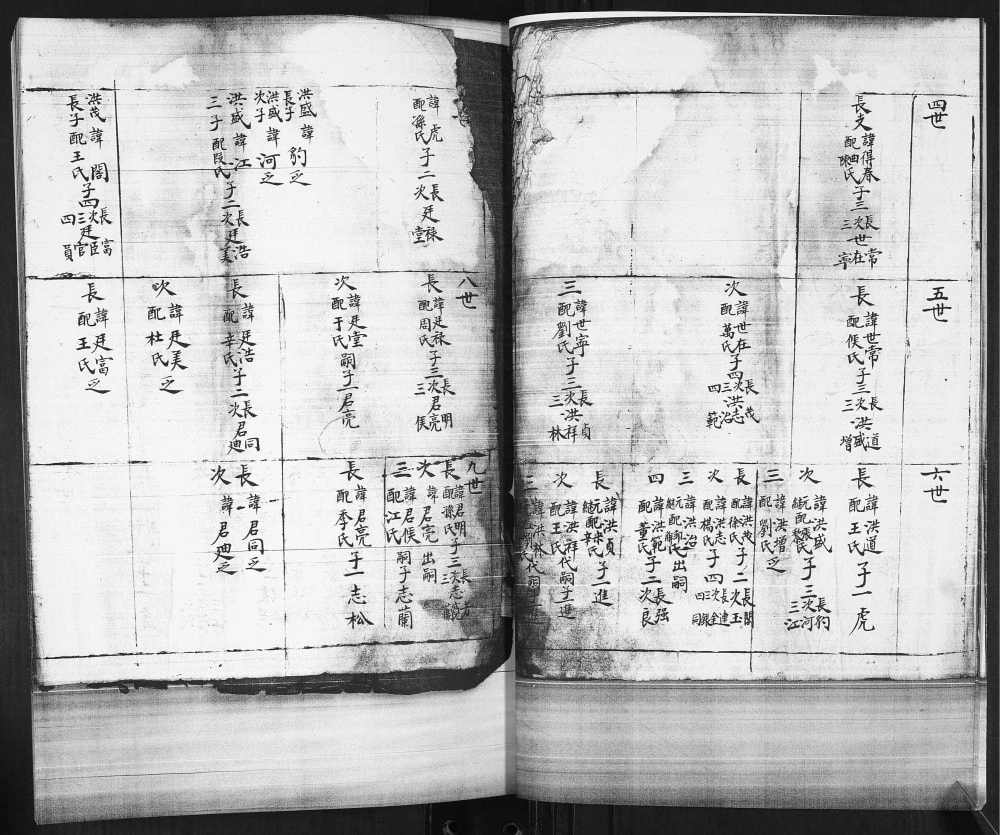 四世
長支諱得春配曲氏陳氏子三長世常次世在三世寧
五世
長諱世常配侯氏子三長洪道次洪盛三洪增
次諱世在配萬氏子四長洪茂次洪志三洪治四洪範
三諱世寧配劉氏子三長洪貞次洪祥三洪林
六世
長諱洪道配王氏子一虎
次諱洪盛元配張氏子三長豹次河三江
三諱洪增配劉氏乏
長諱洪茂配徐氏子二長閣次玉
次諱洪志配楊氏子四長連次金三銀四同
三諱洪治元配氏出嗣
四諱洪範配董氏子二長强次良
長諱洪貞元配氏繼辛氏子一進
次諱洪祥配王氏代嗣子一進
三諱洪林
諱虎配孫氏子二長廷祿次廷堂
洪盛長子諱豹乏
洪盛次子諱河乏
洪盛三子諱江配段氏子二長廷浩次廷美
洪茂長子諱閣配王氏子四長廷富次廷臣三廷官四廷員
八世
長諱廷祿配周氏子三長君明次君亮三君侯
次諱廷堂配于氏嗣子一君亮
長諱廷浩配辛氏子二長君同次君廸
次諱廷美配杜氏乏
長諱廷富配王氏乏
九世
長諱君明配孫氏子三次志
次諱君亮出嗣
三諱君侯配江氏嗣子志蘭
長諱君亮配季氏子一志松
長諱君同乏
次諱君廸乏